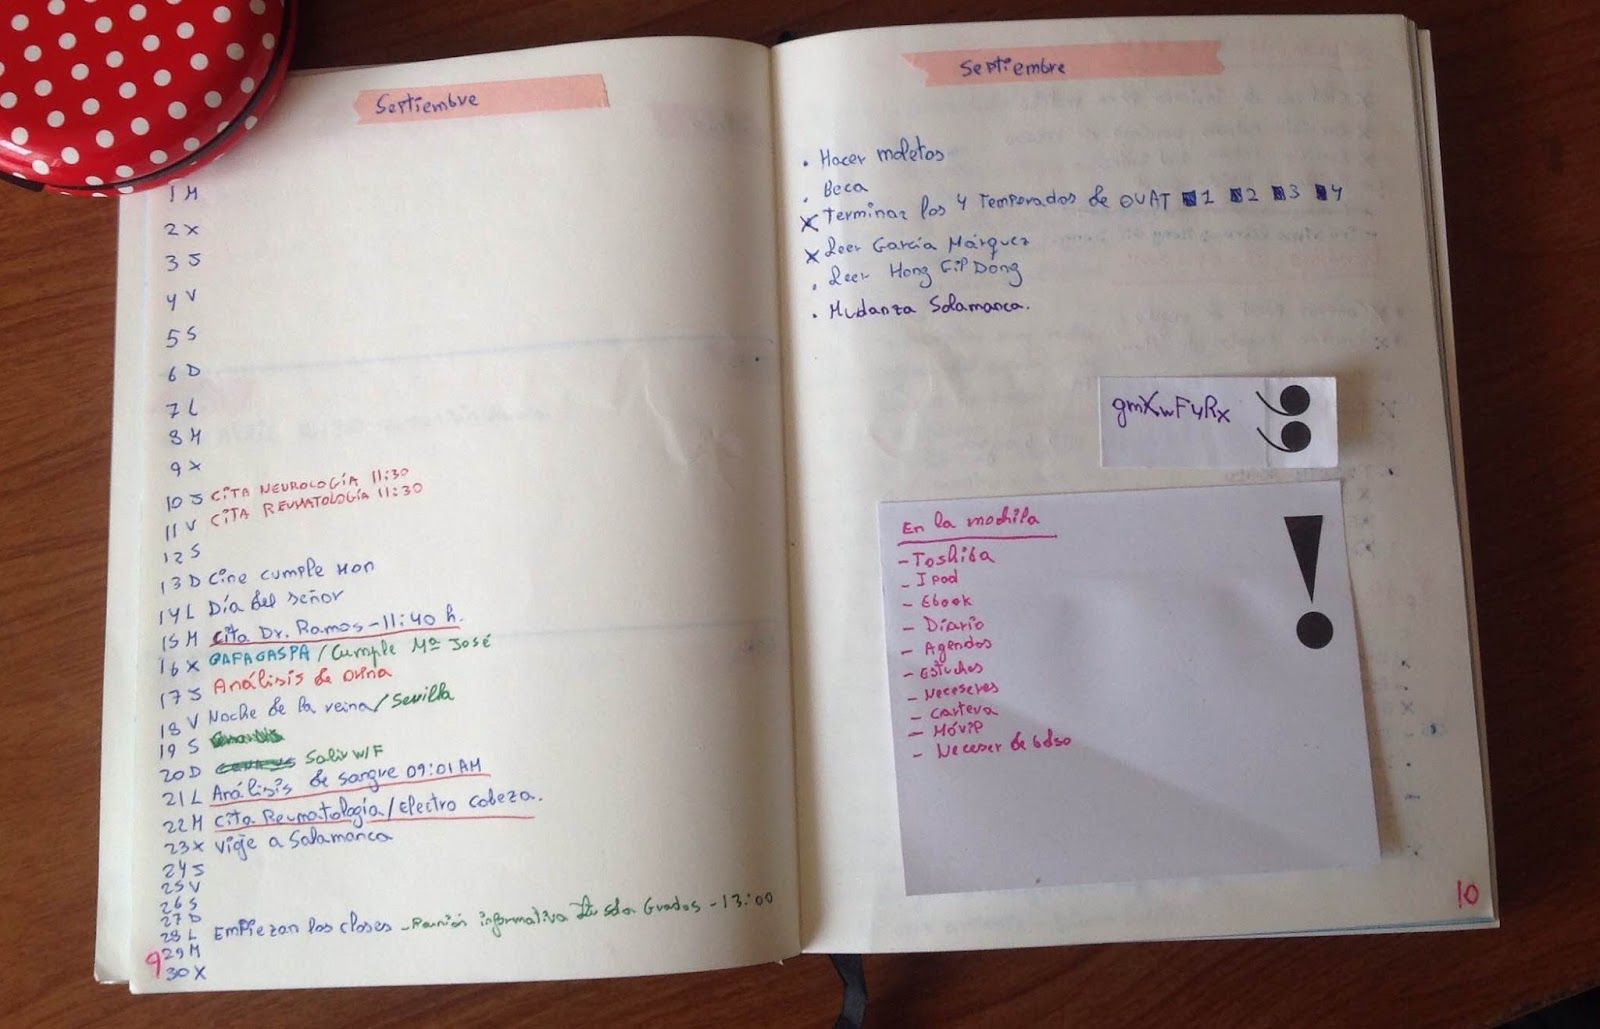 Septiembre
1 M
2 X
3 J
4 V
5 S
6 D
7 L
8 M
9 X
10 J CITA NEUROLOGÍA 11:30
11 V CITA REUMATOLOGÍA 11:30
12 S
13 D Cine cumple Mon
14 L Día del señor
15 M Cita Dr. Ramos - 11:40 h.
16 X GAFAGASPA / Cumple Mª José
17 J Análisis de orina
18 V Noche de la reina / Sevilla
19 S
20 D Salir w/F
21 L Análisis de sangre 09:01 AM
22 M Cita Reumatología / Electro cabeza.
23 X Viaje a Salamanca
24 J
25 V
26 S
27 D
28 L Empiezan las clases - Reunión informativa Grados - 13:00
29 M
30 X
9
Septiembre
. Hacer maletas
. Beca
X Terminar las 4 Temporadas de OUAT 1 2 3 4
X Leer García Márquez
. Leer Hong Gil Dong
. Mudanza Salamanca.
gmXwF4Rx
En la mochila
- Toshiba
- Ipod
- Ebook
- Diario
- Agendas
- Estuches
- Neceseres
- Cartera
- Móvil
- Neceser de bolso
!
10